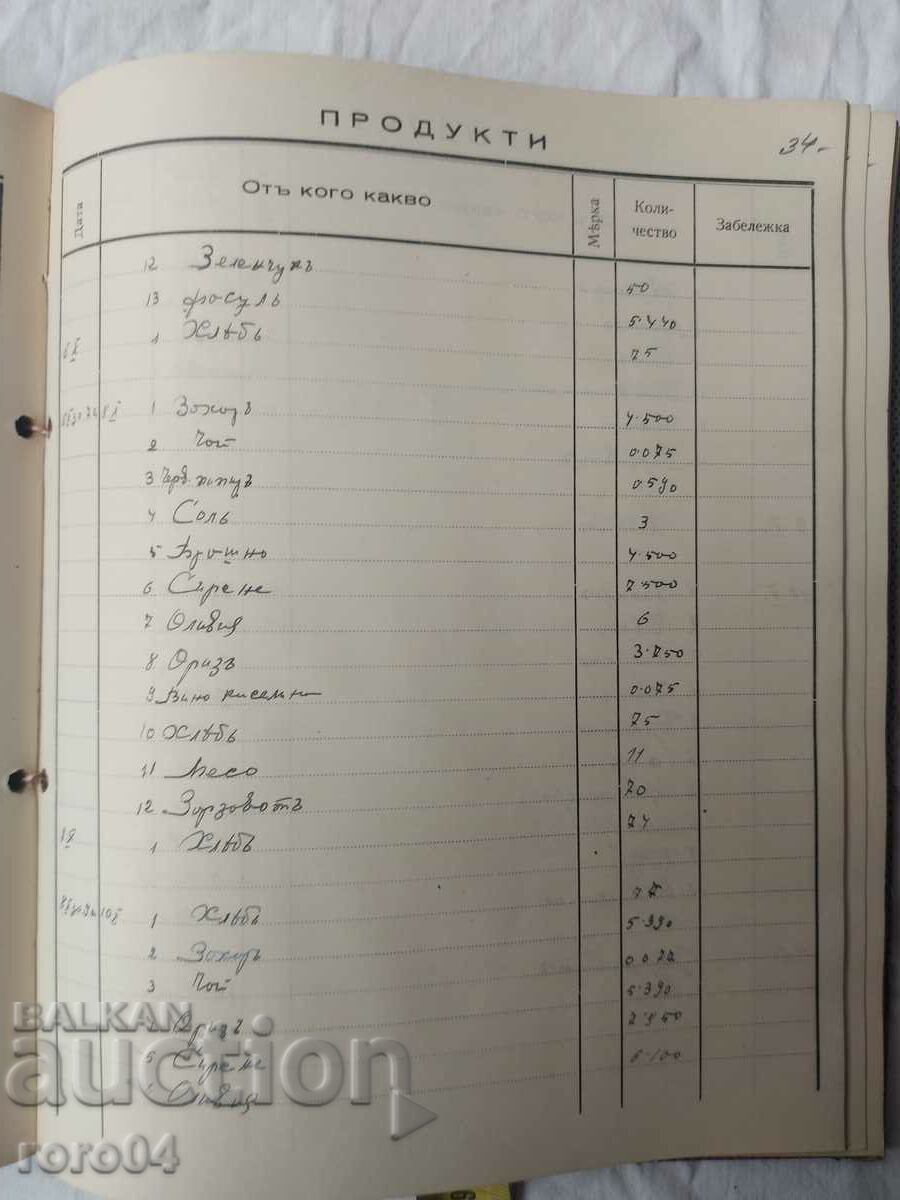 ПРОДУКТИ
34-
Дата Отъ кого какво Мѣрка Коли-чество Забележка
12 Зеленчукъ 50
13 фасулъ 5.440
6 X 1 Хлѣбъ 75
8 X 1 Захаръ 4.500
2 Чай 0.075
3 Черв. пиперъ 0.590
4 Соль 3
5 Брашно 4.500
6 Сирене 7500
7 Оливия 6
8 Оризъ 3.750
9 Вино кисел 0.075
10 Хлѣбъ 75
11 Месо 11
12 70
X 1 Хлѣбъ 74
10 X 1 Хлѣбъ
2 Захаръ 5.990
3 Чай
Оризъ 5.390
5 Сирене 2850
Оливия 6.100
BALKAN
auction
roro04